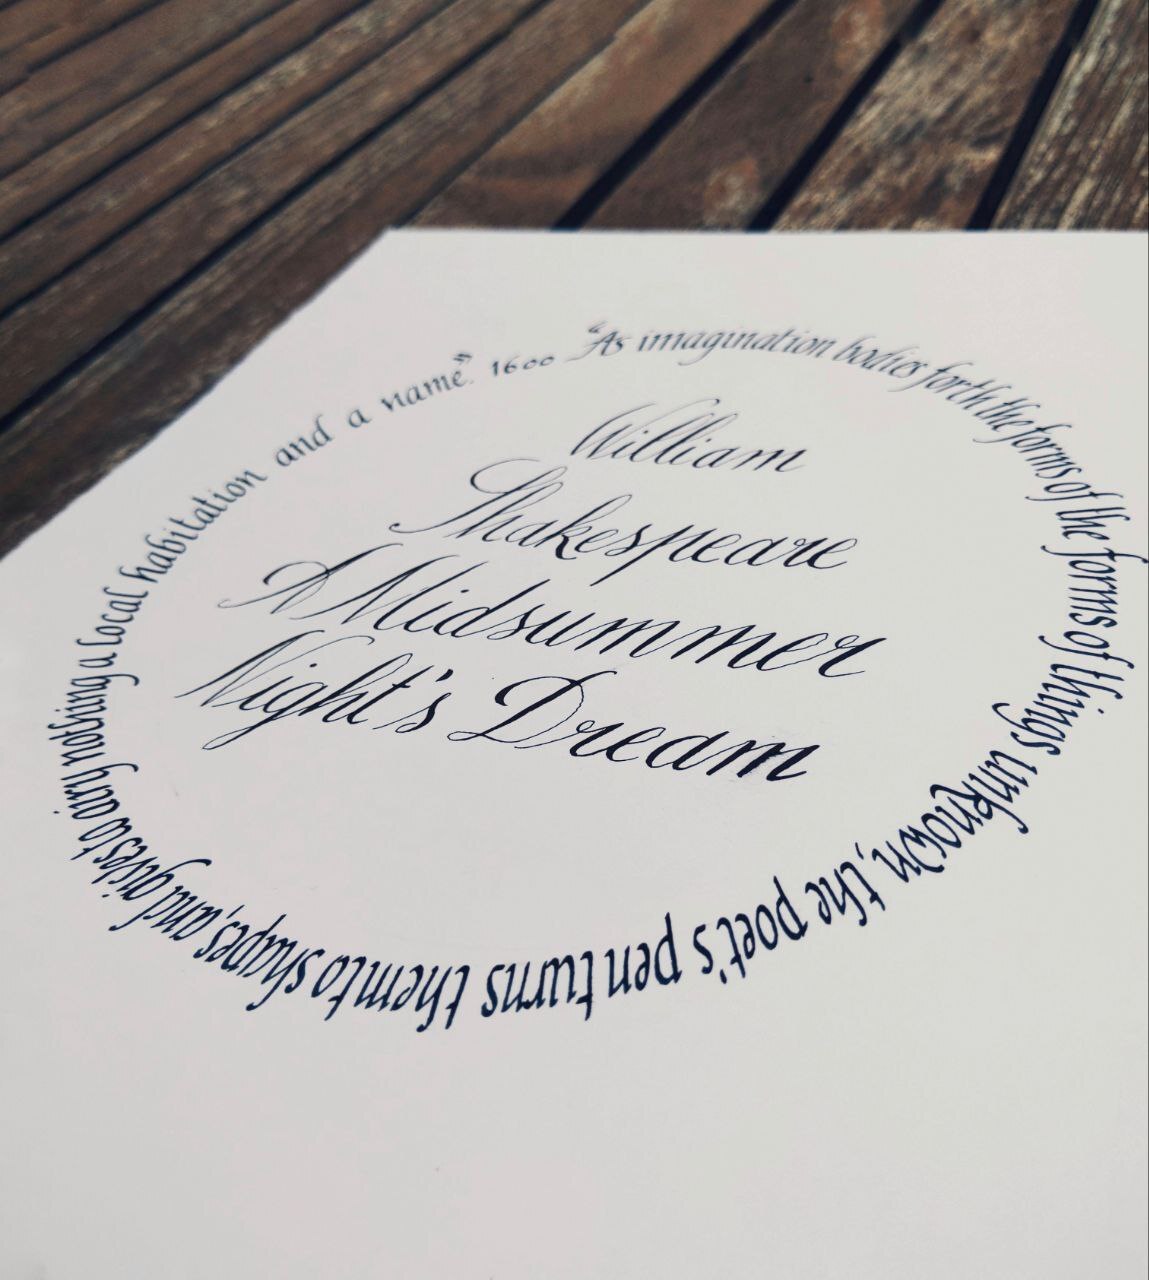 “As imagination bodies forth the forms of the forms of things unknown, the poet's pen turns them to shapes, and gives to airy nothing a local habitation and a name”. 1600
William
Shakespeare
A Midsummer
Night's Dream